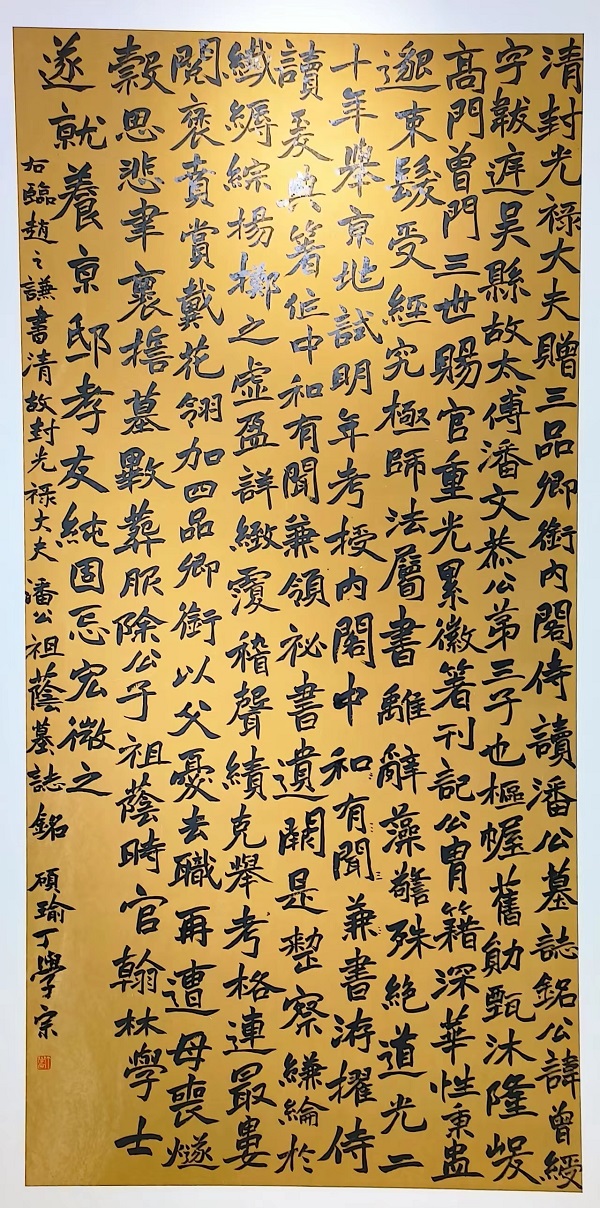 清封光禄大夫贈三品卿銜內閣侍讀潘公墓誌銘公諱曾綬
字紱庭吳縣故太傅潘文恭公第三子也樞幄舊勛甄沐隆
高門曾門三世賜官重光累徽箸刊記公胄籍深華性秉
邈束髮受經究極師法屬書離辭藻警殊絕道光二
十年舉京兆試明年考授內閣中和有聞兼書洊擢侍
讀爰典箸位中和有聞兼領祕書遺闕是整察縑綸於
纖縟綜揚榷之虛盈詳緻覆稽聲績克舉考格連最婁
閣褒賁賞戴花翎加四品卿銜以父憂去職再遭母喪
穀思悲聿裏捂墓斁葬服除公子祖蔭時官翰林學士
遂就養京邸孝友純固忌宏微之
右臨趙之謙書清故封光禄大夫潘公祖蔭墓誌銘 碩瑜丁學宗